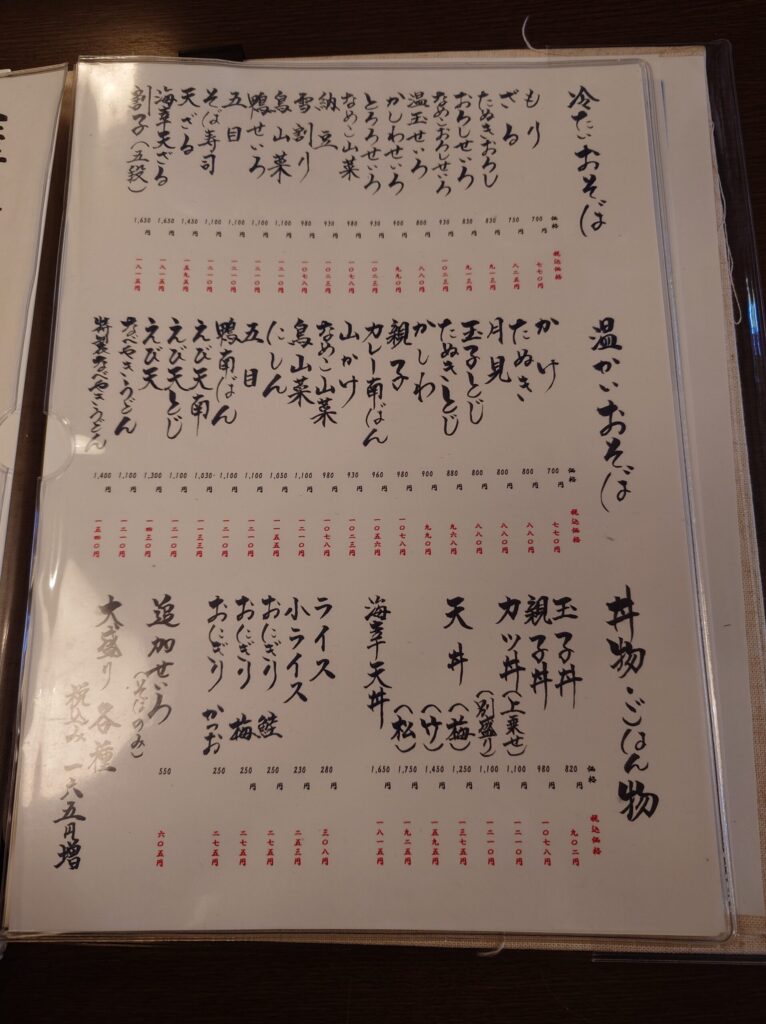 冷たいおそば
価格 税込価格
もり 700円 七七〇円
ざる 750円 八二五円
たぬきおろし 830円 九一三円
おろしせいろ 830円 九一三円
なめこおろしせいろ 930円 一〇二三円
温玉せいろ 800円 八八〇円
かしわせいろ 900円 九九〇円
とろろせいろ 930円 一〇二三円
なめこ山菜 980円 一〇七八円
納豆 930円 一〇二三円
雪割り 980円 一〇七八円
鳥山菜 1,100円 一二一〇円
鴨せいろ 1,100円 一二一〇円
五目 1,100円 一二一〇円
そば寿司 1,100円 一二一〇円
天ざる 1,450円 一五九五円
海幸天ざる 1,650円 一八一五円
割子(五段) 1,650円 一八一五円
温かいおそば
価格 税込価格
かけ 700円 七七〇円
たぬき 800円 八八〇円
月見 800円 八八〇円
玉子とじ 800円 八八〇円
たぬきとじ 880円 九六八円
かしわ 900円 九九〇円
親子 980円 一〇七八円
カレー南ばん 960円 一〇五六円
山かけ 930円 一〇二三円
なめこ山菜 980円 一〇七八円
鳥山菜 1,100円 一二一〇円
にしん 1,050円 一一五五円
五目 1,100円 一二一〇円
鴨南ばん 1,100円 一二一〇円
えび天南 1,030円 一一三三円
えび天とじ 1,100円 一二一〇円
えび天 1,300円 一四三〇円
なべやきうどん 1,100円 一二一〇円
特製なべやきうどん 1,400円 一五四〇円
丼物・ごはん物
価格 税込価格
玉子丼 820円 九〇二円
親子丼 980円 一〇七八円
カツ丼(上乗せ) 1,100円 一二一〇円
(別盛り) 1,100円 一二一〇円
天丼(梅) 1,250円 一三七五円
(竹) 1,450円 一五九五円
(松) 1,750円 一九二五円
海幸天丼 1,650円 一八一五円
ライス 280円 三〇八円
小ライス 230円 二五三円
おにぎり 鮭 250円 二七五円
おにぎり 梅 250円 二七五円
おにぎり かつお 250 二七五円
追加せいろ(そばのみ) 550 六〇五円
大盛り各種
税込み一六五円増